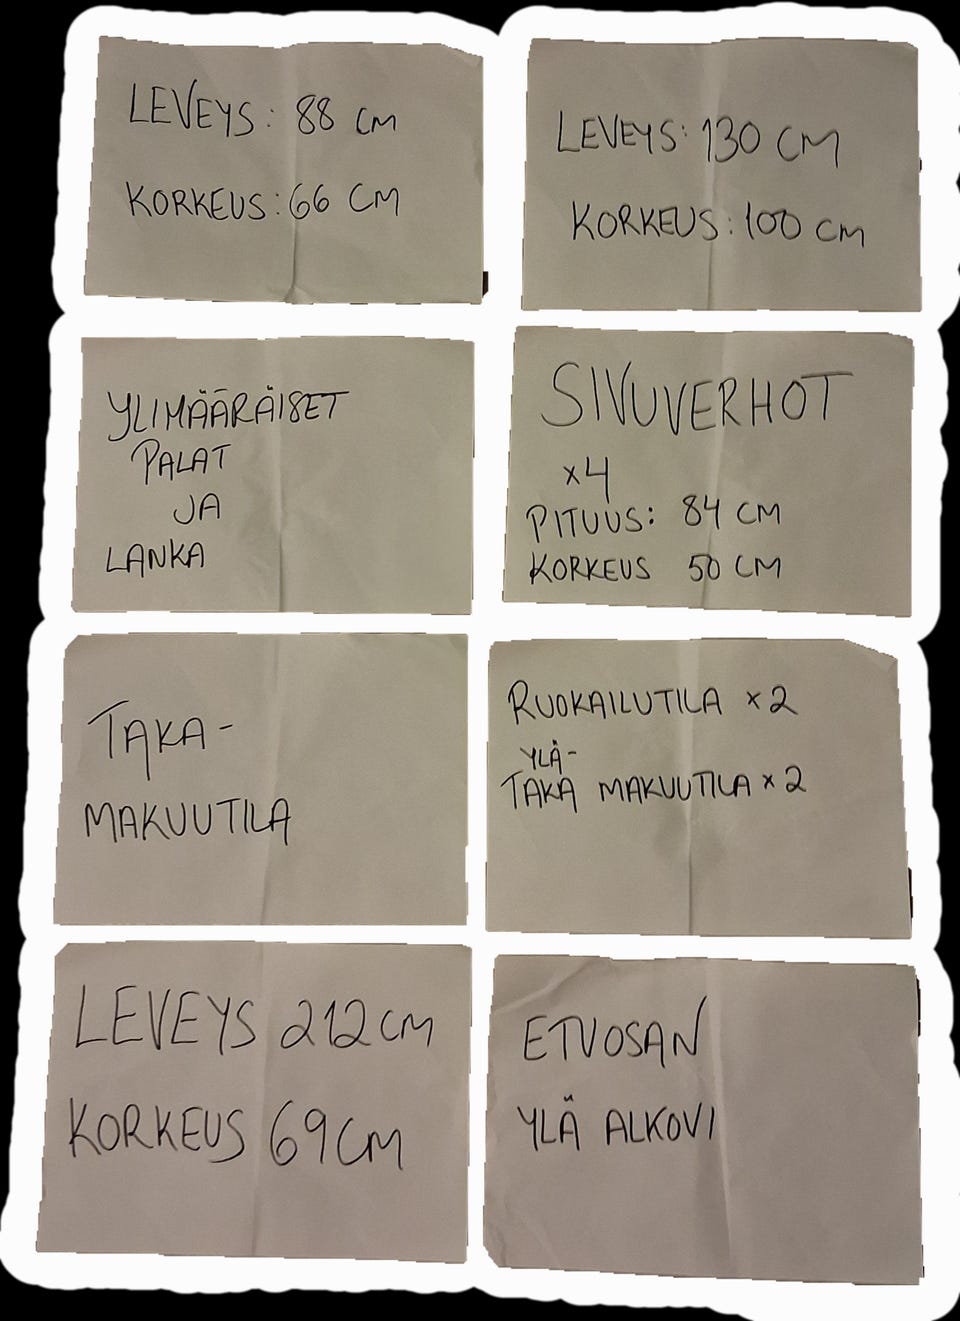 LEVEYS: 88 CM
KORKEUS: 66 CM
LEVEYS: 130 CM
KORKEUS: 100 CM
YLIMÄÄRÄISET
PALAT
JA
LANKA
SIVUVERHOT
x4
PITUUS: 84 CM
KORKEUS 50 CM
TAKA-
MAKUUTILA
RUOKAILUTILA x2
YLÄ-
TAKA MAKUUTILA x2
LEVEYS 212 CM
KORKEUS 69 CM
ETUOSAN
YLÄ ALKOVI